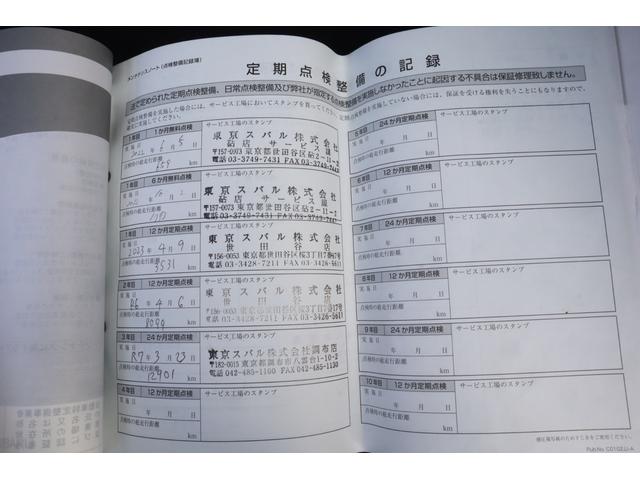 メンテナンスノート（点検整備記録簿）
定期点検整備の記録
法で定められた定期点検整備、日常点検整備及び弊社が指定する点検整備を実施しなかったことに起因する不具合は保証修理致しません。
1年目 1か月無料点検
サービス工場のスタンプ
実施日
2022年6月5日
点検時の総走行距離
659 km
東京スバル株式会社
砧店 サービス課
〒157-0073 東京都世田谷区砧2-11-2
電話03-3749-7431 FAX03-3749-7441
1年目 6か月無料点検
サービス工場のスタンプ
実施日
年 月 日
点検時の総走行距離
km
東京スバル株式会社
砧店 サービス課
〒157-0073 東京都世田谷区砧2-11-2
電話03-3749-7431 FAX03-3749-7441
1年目 12か月定期点検
サービス工場のスタンプ
実施日
2023年4月9日
点検時の総走行距離
3531 km
東京スバル株式会社
世田谷店
〒156-0053 東京都世田谷区桜3丁目7番17号
電話 03-3428-7211 FAX 03-3426-5611
2年目 12か月定期点検
サービス工場のスタンプ
実施日
R6年4月6日
点検時の総走行距離
8099 km
東京スバル株式会社
世田谷店
〒156-0053 東京都世田谷区桜3丁目7番17号
電話 03-3428-7211 FAX 03-3426-5611
3年目 12か月定期点検
サービス工場のスタンプ
実施日
R7年3月23日
点検時の総走行距離
12901 km
東京スバル株式会社調布店
〒182-0015 東京都調布市八雲台1-10-2
電話 042-485-1100 FAX 042-485-1130
4年目 12か月定期点検
サービス工場のスタンプ
実施日
年 月 日
点検時の総走行距離
km
5年目 24か月定期点検
サービス工場のスタンプ
実施日
年 月 日
点検時の総走行距離
km
6年目 12か月定期点検
サービス工場のスタンプ
実施日
年 月 日
点検時の総走行距離
km
7年目 24か月定期点検
サービス工場のスタンプ
実施日
年 月 日
点検時の総走行距離
km
8年目 12か月定期点検
サービス工場のスタンプ
実施日
年 月 日
点検時の総走行距離
km
9年目 24か月定期点検
サービス工場のスタンプ
実施日
年 月 日
点検時の総走行距離
km
10年目 12か月定期点検
サービス工場のスタンプ
実施日
年 月 日
点検時の総走行距離
km